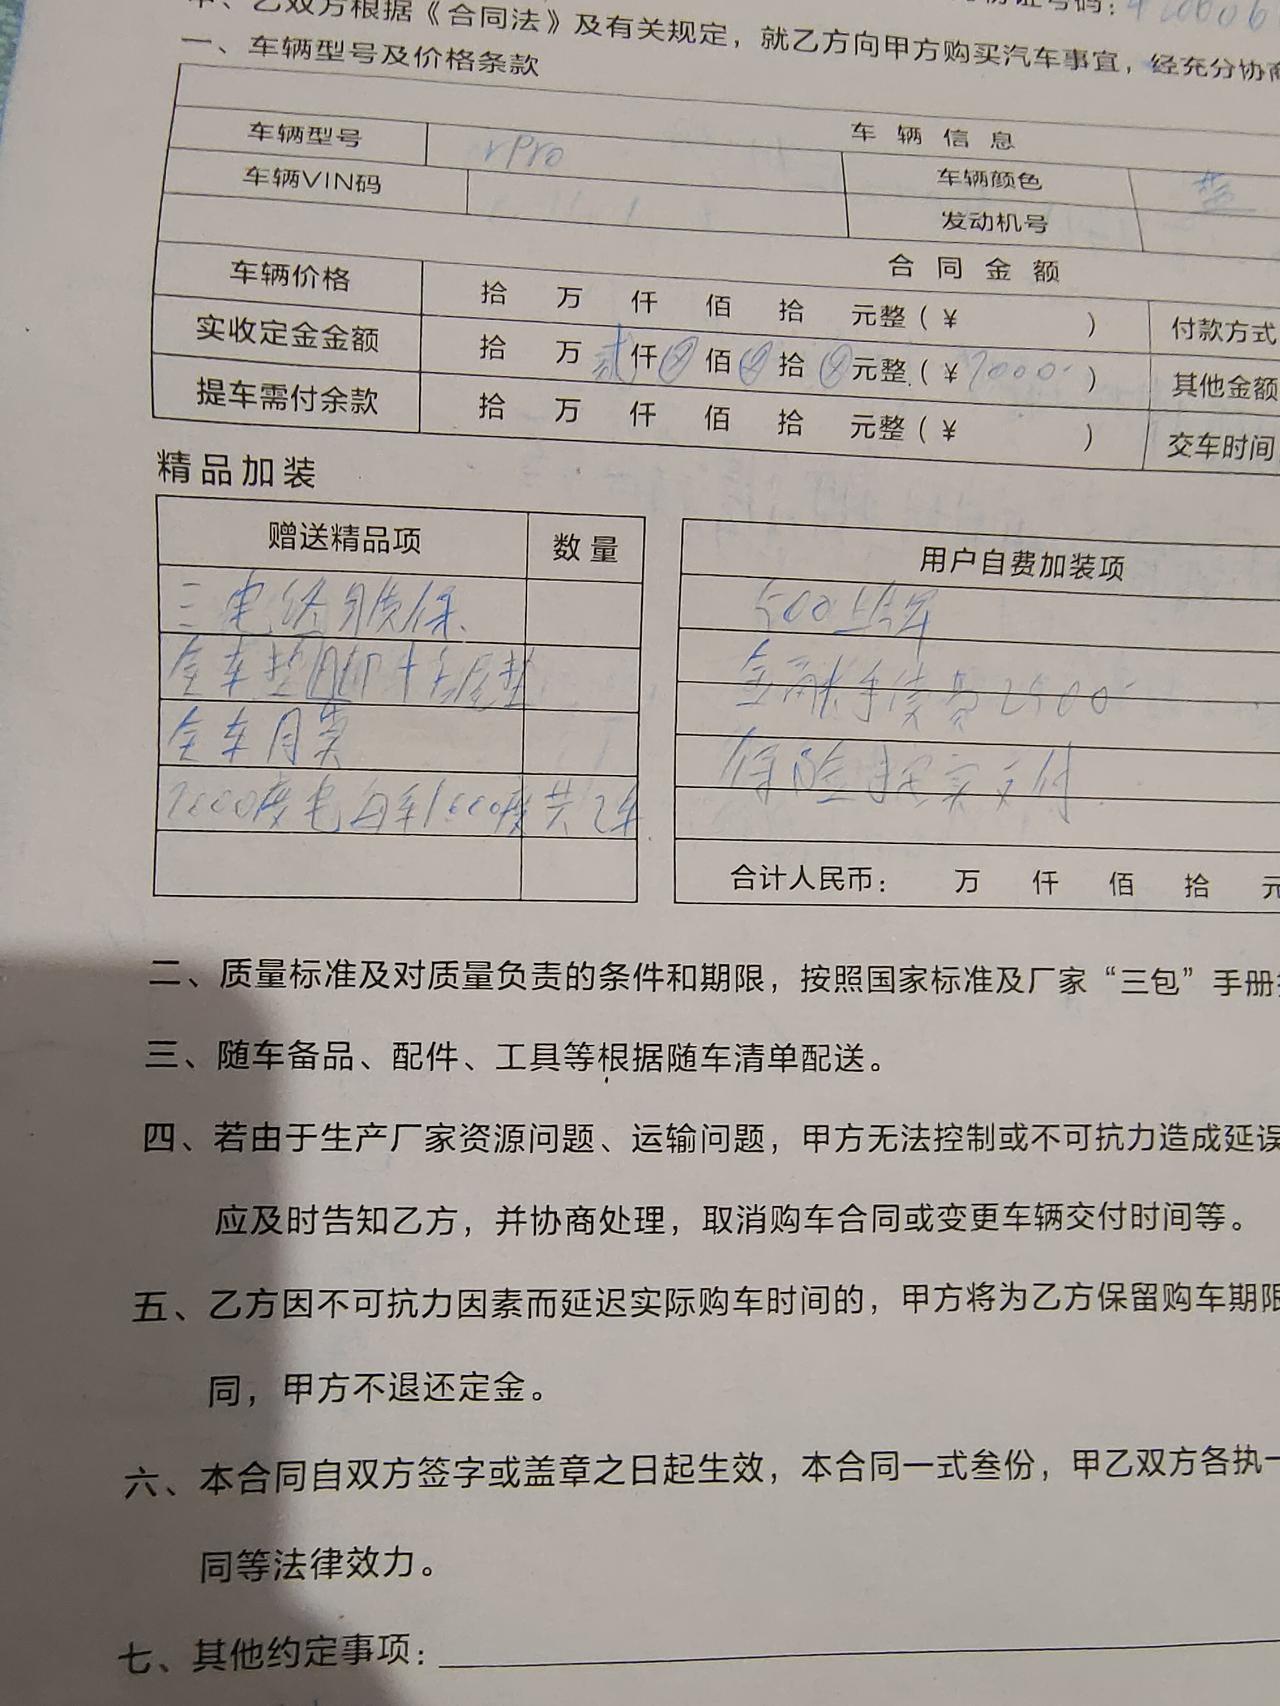 甲、乙双方根据《合同法》及有关规定，就乙方向甲方购买汽车事宜，经充分协商
一、车辆型号及价格条款
车辆信息
车辆型号 rPro 车辆颜色
车辆VIN码 发动机号
合同金额
车辆价格 拾 万 仟 佰 拾 元整（¥ ） 付款方式
实收定金金额 拾 万 贰仟 佰 拾 元整.（¥ 2000 ） 其他金额
提车需付余款 拾 万 仟 佰 拾 元整（¥ ） 交车时间
精品加装
赠送精品项 数量
三电终身质保
全车垫脚+后尾垫
全车月膜
2000度电 每年1000度共2年
用户自费加装项
500上牌
金融手续费2500
保险按实支付
合计人民币： 万 仟 佰 拾 元
二、质量标准及对质量负责的条件和期限，按照国家标准及厂家“三包”手册
三、随车备品、配件、工具等根据随车清单配送。
四、若由于生产厂家资源问题、运输问题，甲方无法控制或不可抗力造成延误
应及时告知乙方，并协商处理，取消购车合同或变更车辆交付时间等。
五、乙方因不可抗力因素而延迟实际购车时间的，甲方将为乙方保留购车期限
同，甲方不退还定金。
六、本合同自双方签字或盖章之日起生效，本合同一式叁份，甲乙双方各执一
同等法律效力。
七、其他约定事项：